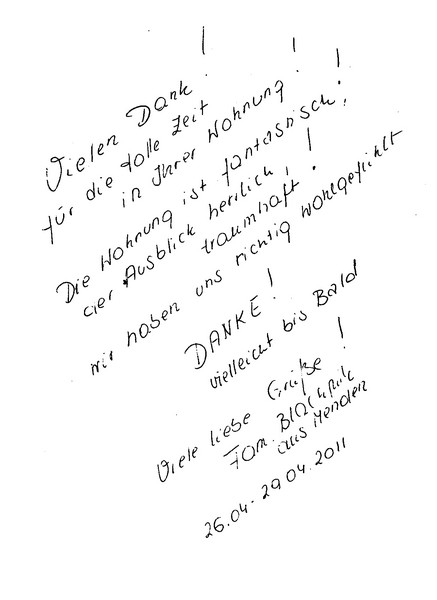 Vielen Dank!
für die tolle Zeit
in Ihrer Wohnung!
Die Wohnung ist fantastisch!
der Ausblick herrlich,
traumhaft!
wir haben uns richtig wohlgefühlt
DANKE!
vielleicht bis Bald
Viele liebe Grüße!
Fam.
aus Menden
26.04-29.04.2011